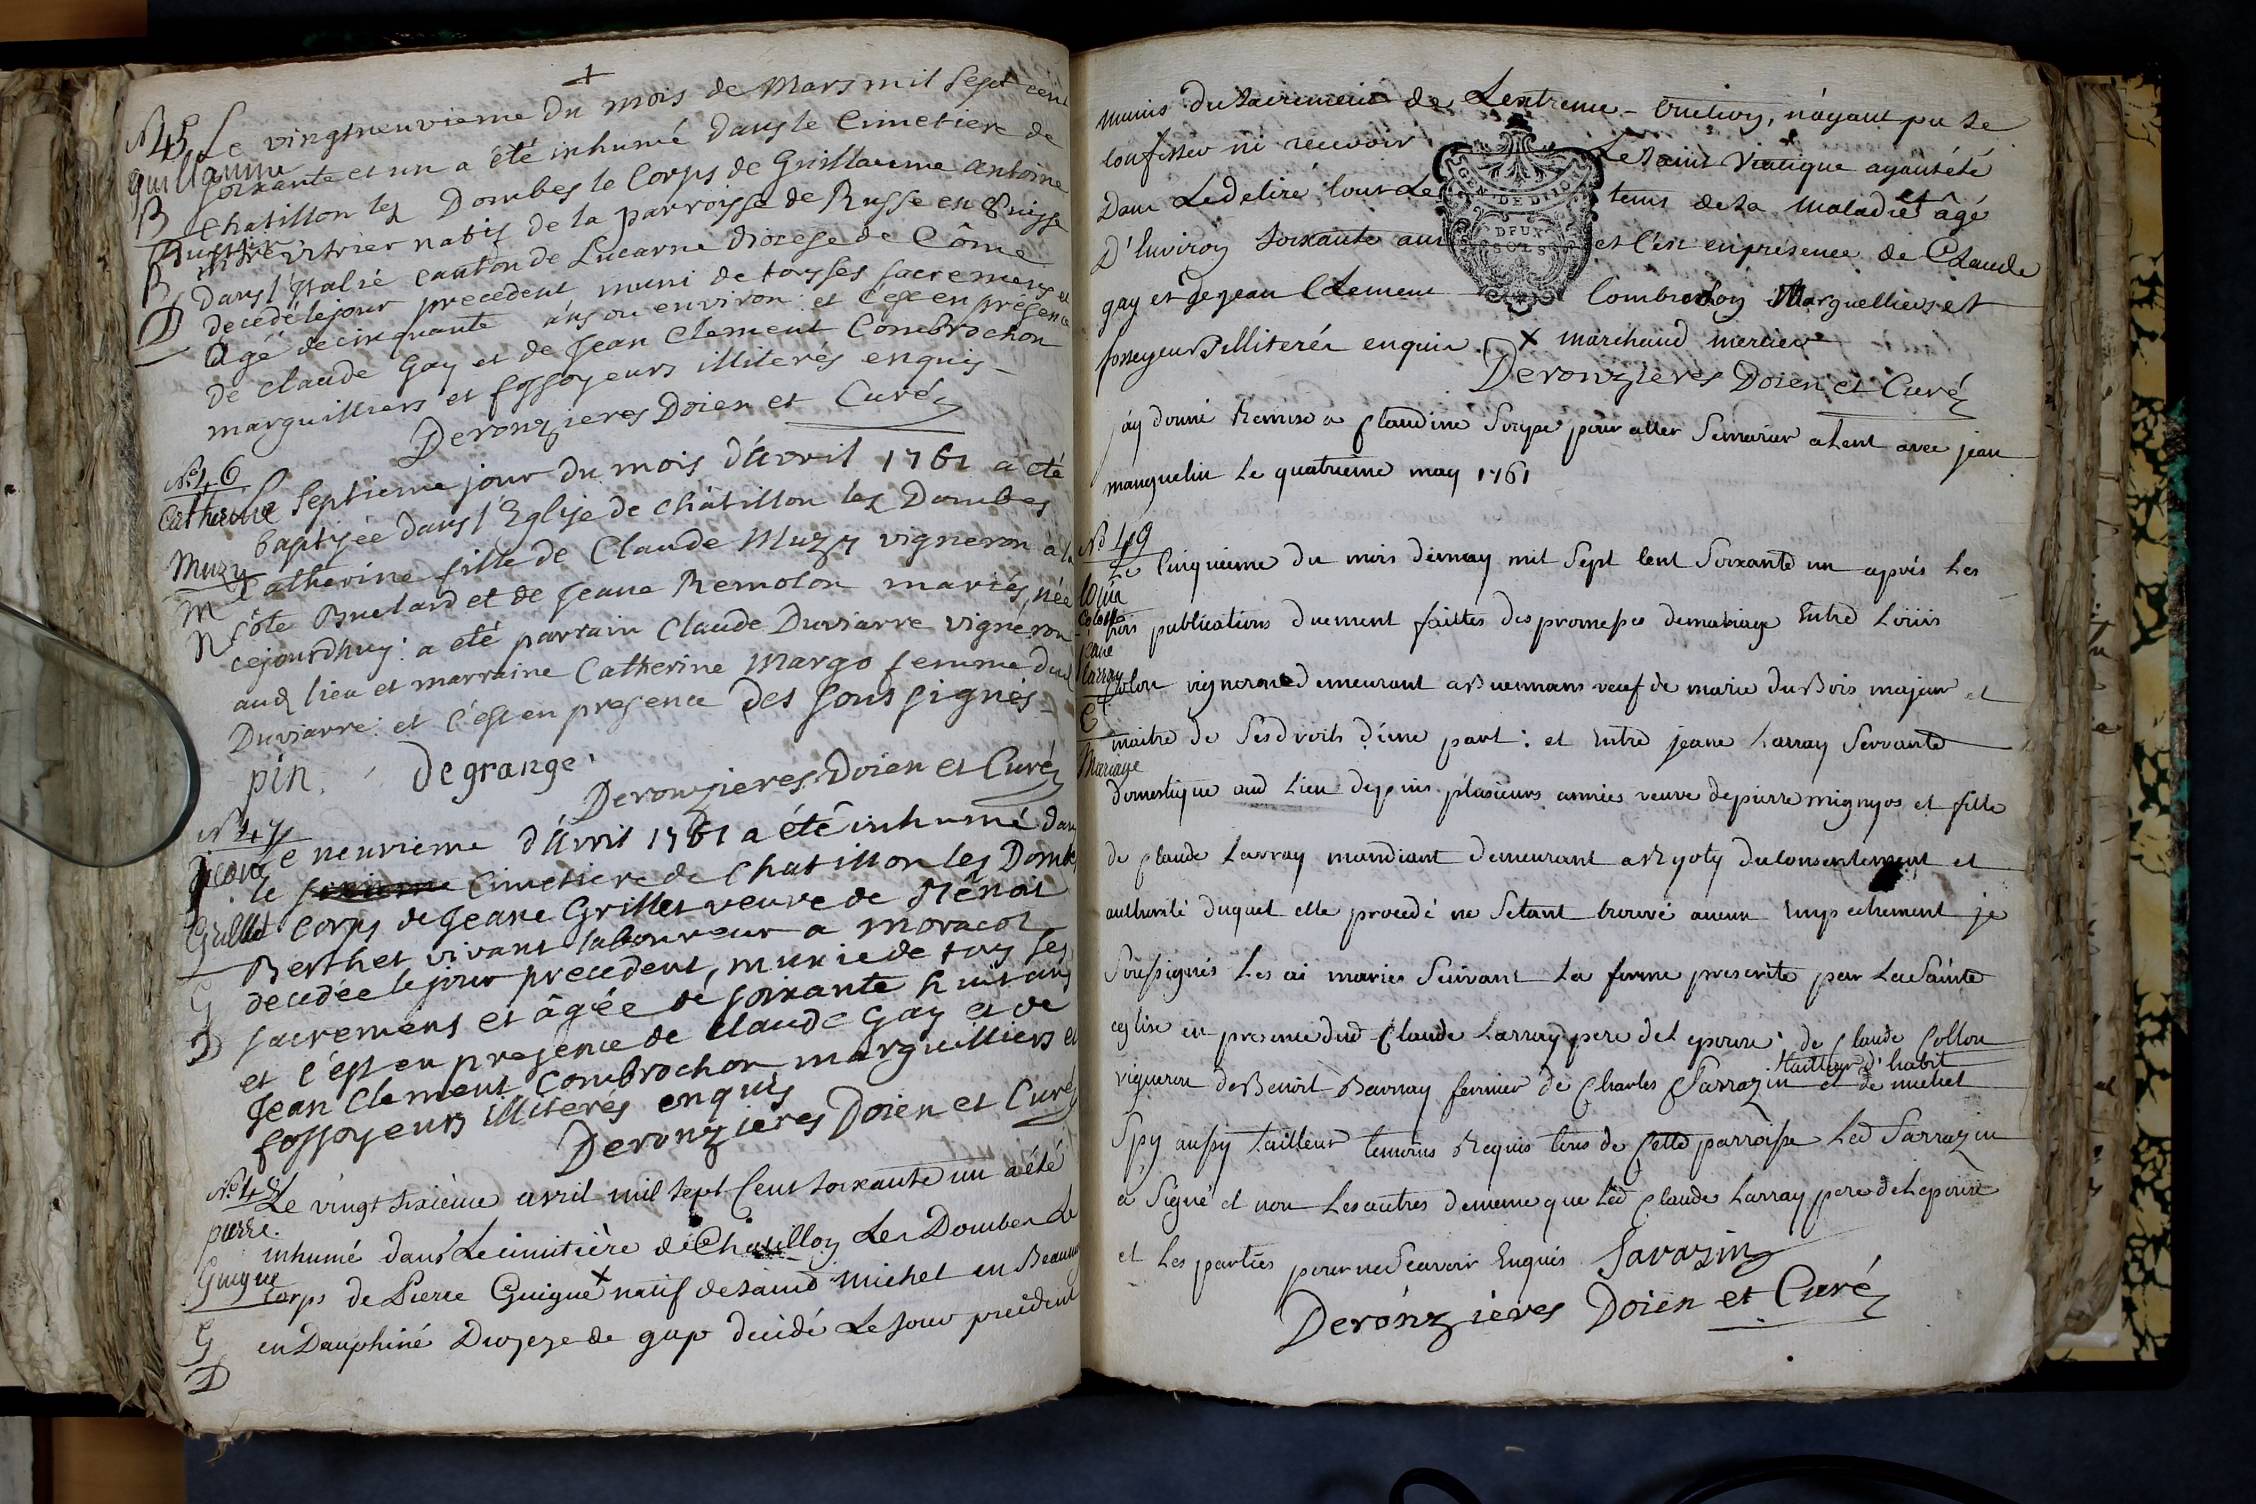 N° 45
Le vingtneuvieme du mois de Mars mil sept cent
Guillaume
soixante et un a été inhumé dans le Cimetiere de
Chatillon lez Dombes le Corps de Guillaume antoine
vitrier natif de la parroisse de Russe en Suisse
dans l'Italie canton de Lucarne diocese de Côme
decedé le jour precedent muni de tous ses sacremens et
agé de cinquante ans ou environ et c'est en presence
de claude Gay et de Jean Clement Combrochon
marguilliers et fossoyeurs illiterés enquis
Deronzieres Doien et Curé
N° 46
Catherine
Le Septieme jour du mois d'Avril 1761 a été
baptisée dans l'Eglise de châtillon lez Dombes
Muzy
Catherine fille de Claude Muzy vigneron à la
M
Côte Brulard et de Jeane Remolon mariés, née
N
cejourd'huy: a été parrain Claude Duviarre vigneron
aud lieu et marraine Catherine Margo femme dud
Duviarre: et c'est en presence des soussignés
pin. degrange
Deronzieres Doien et Curé
N° 47
Jeane
Le neuvieme d'Avril 1761 a été inhumé dans
le Cimetiere de Chatillon les Dombes
Grillet
corps de Jeane Grillet veuve de Benoit
Berthet vivant laboureur a
G
decedée le jour precedent, munie de tous ses
D
sacremens et âgée de soixante huit ans
et c'est en presence de claude Gay et de
Jean Clement Combrochon marguilliers et
fossoyeurs illiterés enquis
Deronzieres Doien et Curé
N° 48
Le vingt sixième avril mil sept Cent soixante un a été
pierre
inhumé dans Le cimitière de Chatillon Les Dombes Le
Guigue
corps de Pierre Guigue x natif de saint Michel en
G
en Dauphiné Diozeze de gap décédé Le Jour précédent
D
munis du sacrement de Lextreme-onction, n'ayant pu se
confesser ni recevoir Le saint Viatique ayant été
Dans Le delire tout Le tems de sa maladie et âgé
D'Environ soixante ans et c'est en présence de Claude
gay et de jean Clement Combrochon Marguelliers et
fossoyeurs illiterés enquis x marchand mercier
Deronzieres Doien et Curé
j'ay donné Remise a Claudine Soupe pour aller Se marier a Lent avec jean
manguelin Le quatrieme may 1761
N° 49
Le Cinquieme du mois de may mil Sept Cent Soixante un après Les
Louis
Colon
trois publications duement faittes des promesses de mariage Entre Loüis
jeane
Larray
Colon vigneron demeurant a Buenans veuf de marie du Bois majeur et
Et
maitre de Ses droits d'une part: et Entre jeane Larray Servante
Mariage
domestique aud Lieu depuis plusieurs années veuve de pierre mignyos et fille
de Claude Larray mandiant demeurant a du Consentement et
authorité duquel elle procede ne Setant trouvé aucun Empechement je
Soussignés Les ai mariés Suivant La forme prescrite par La Sainte
eglise en presence dud Claude Larray pere de L'epouse: de Claude Collon
tailleur d'habit
vigneron de Benoit Bernay fermier de Charles Sarrazin et de michel
Spy aussy tailleur temoins Requis tous de Cette parroisse Led Sarrazin
a Signé et non Les autres de meme que Led Claude Larray pere de Lepouse
et Les parties pour ne Scavoir Enquis Savazin
Deronzieres Doien et Curé
GEN. DE DIJON
DEUX
SOLS